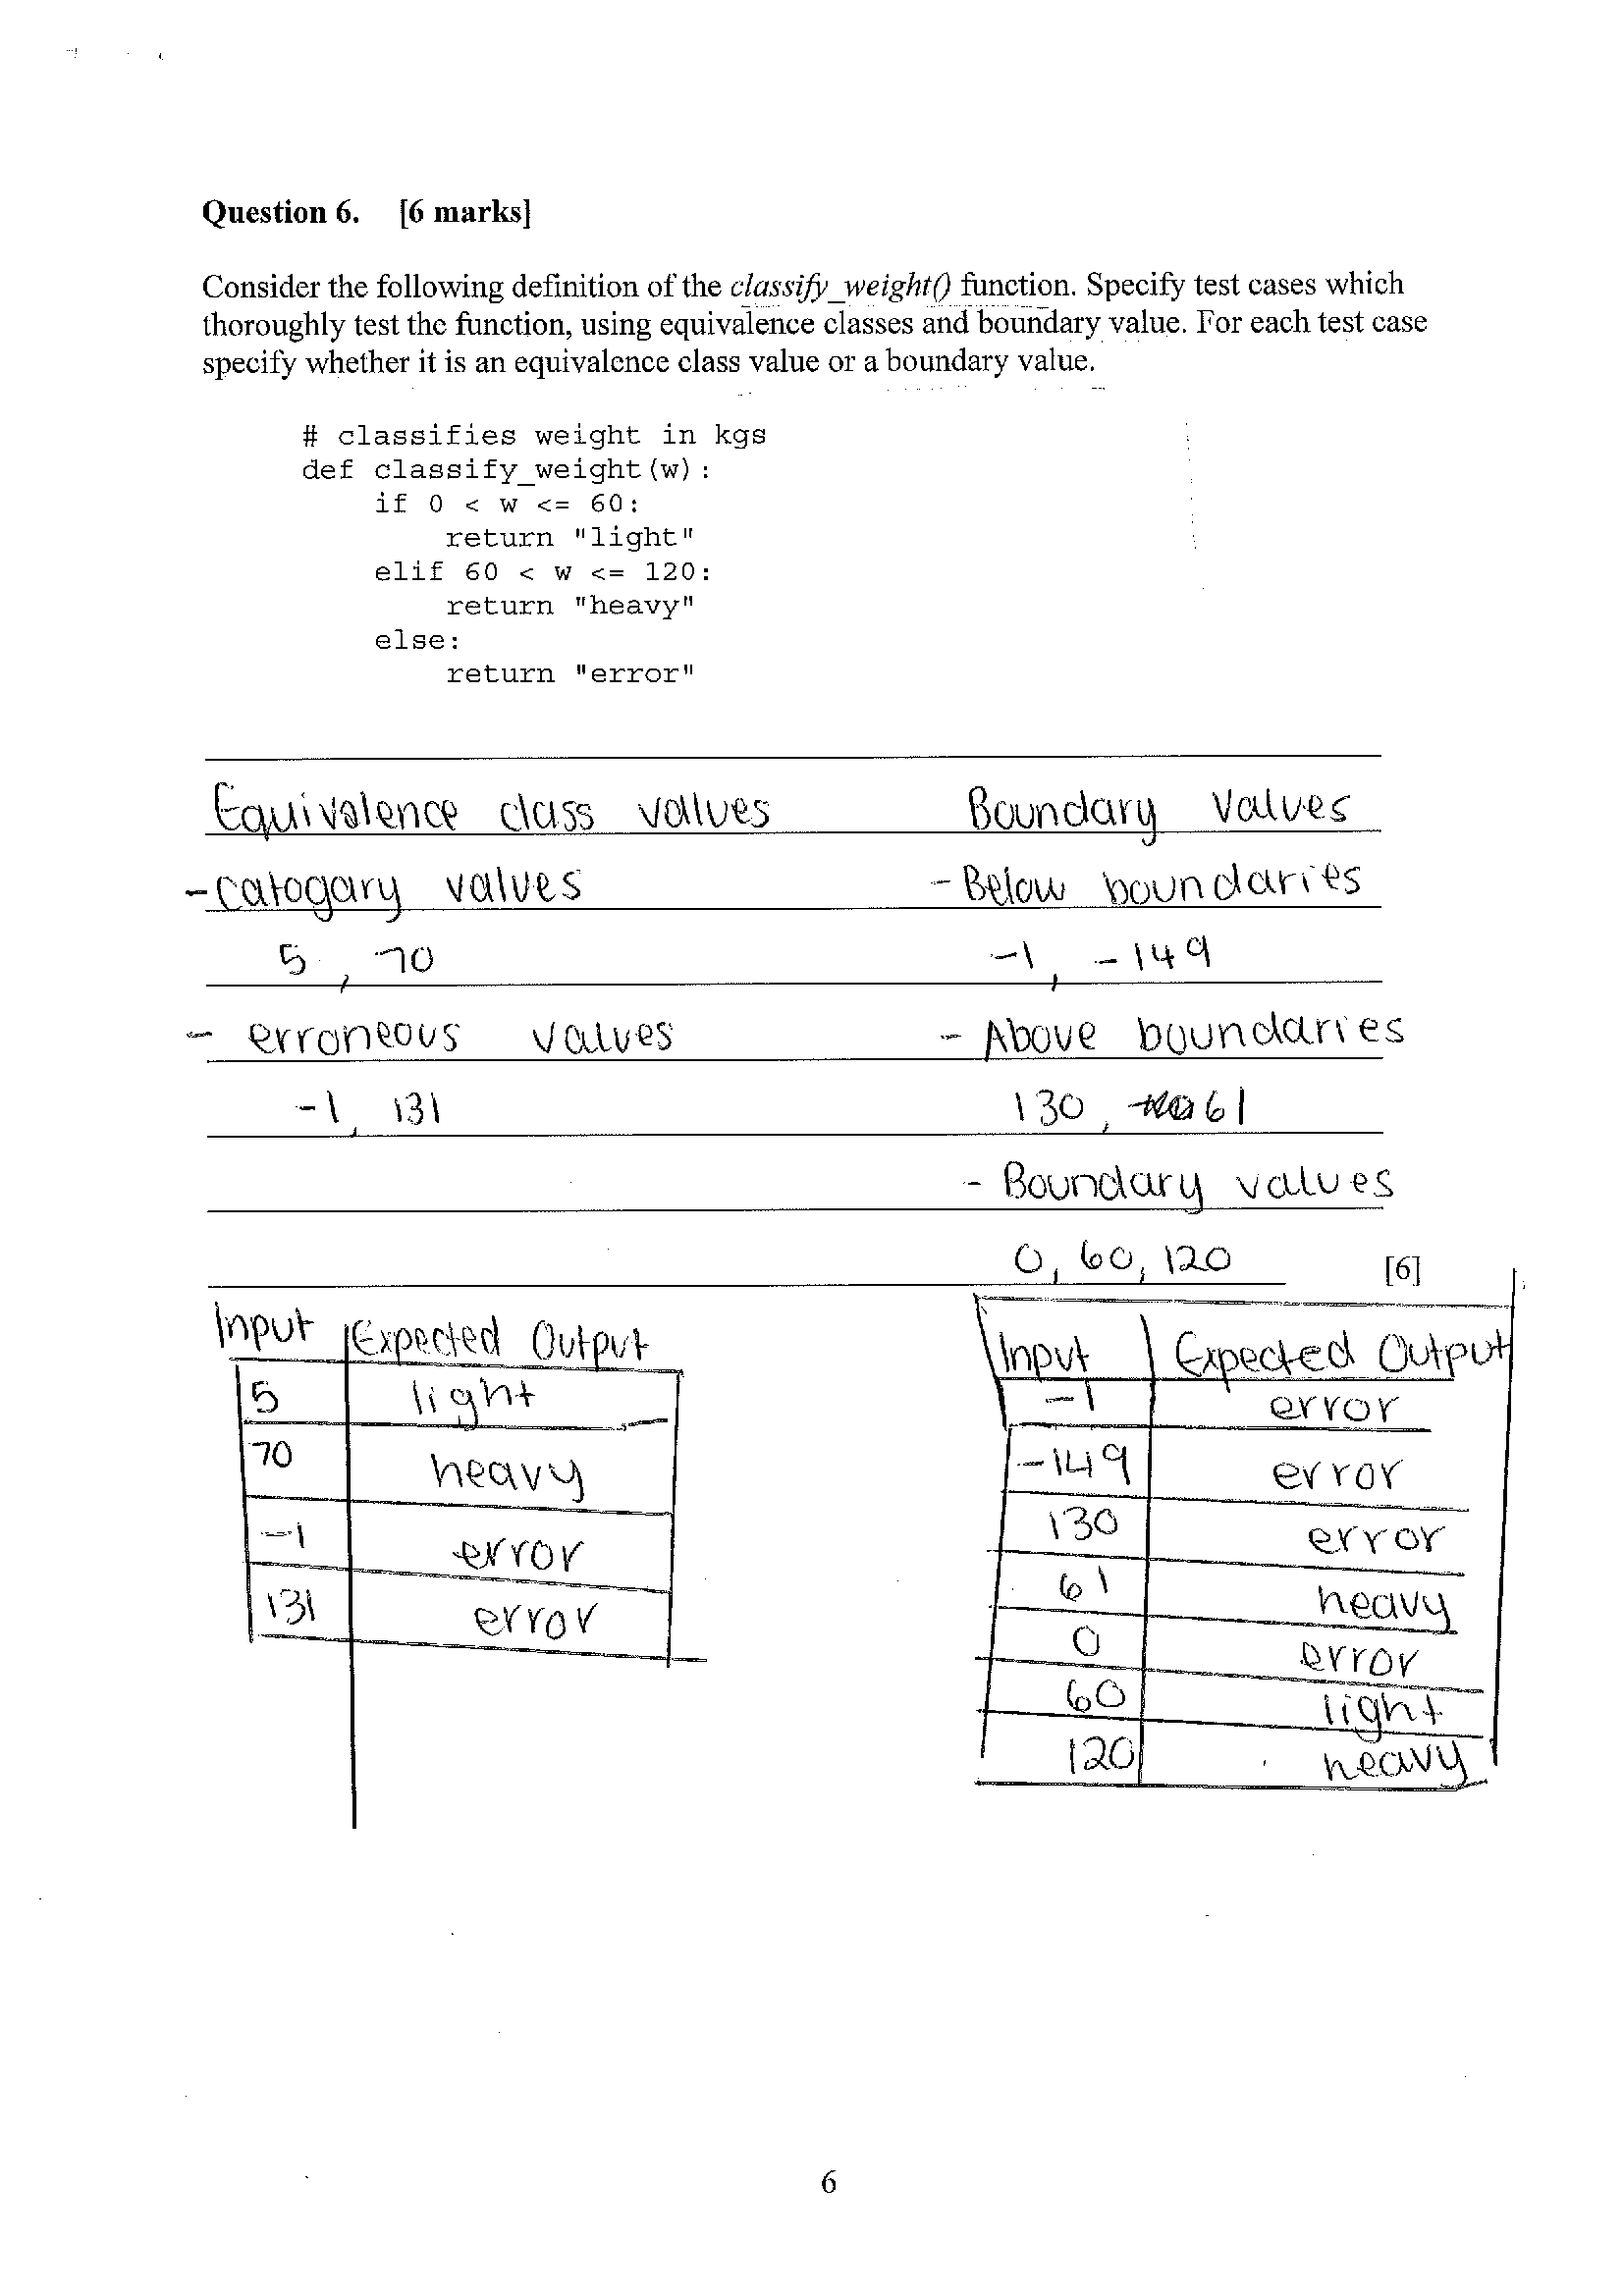 Question 6. [6 marks]
Consider the following definition of the classify_weight() function. Specify test cases which
thoroughly test the function, using equivalence classes and boundary value. For each test case
specify whether it is an equivalence class value or a boundary value.
# classifies weight in kgs
def classify_weight(w):
    if 0 < w <= 60:
        return "light"
    elif 60 < w <= 120:
        return "heavy"
    else:
        return "error"
Equivalence class values Boundary Values
- catogary values - Below boundaries
5, 70 -1, -149
- erroneous values - Above boundaries
-1, 131 130, 61
- Boundary values
0, 60, 120 [6]
Input Expected Output
5 light
70 heavy
-1 error
131 error
Input Expected Output
-1 error
-149 error
130 error
61 heavy
0 error
60 light
120 heavy
6